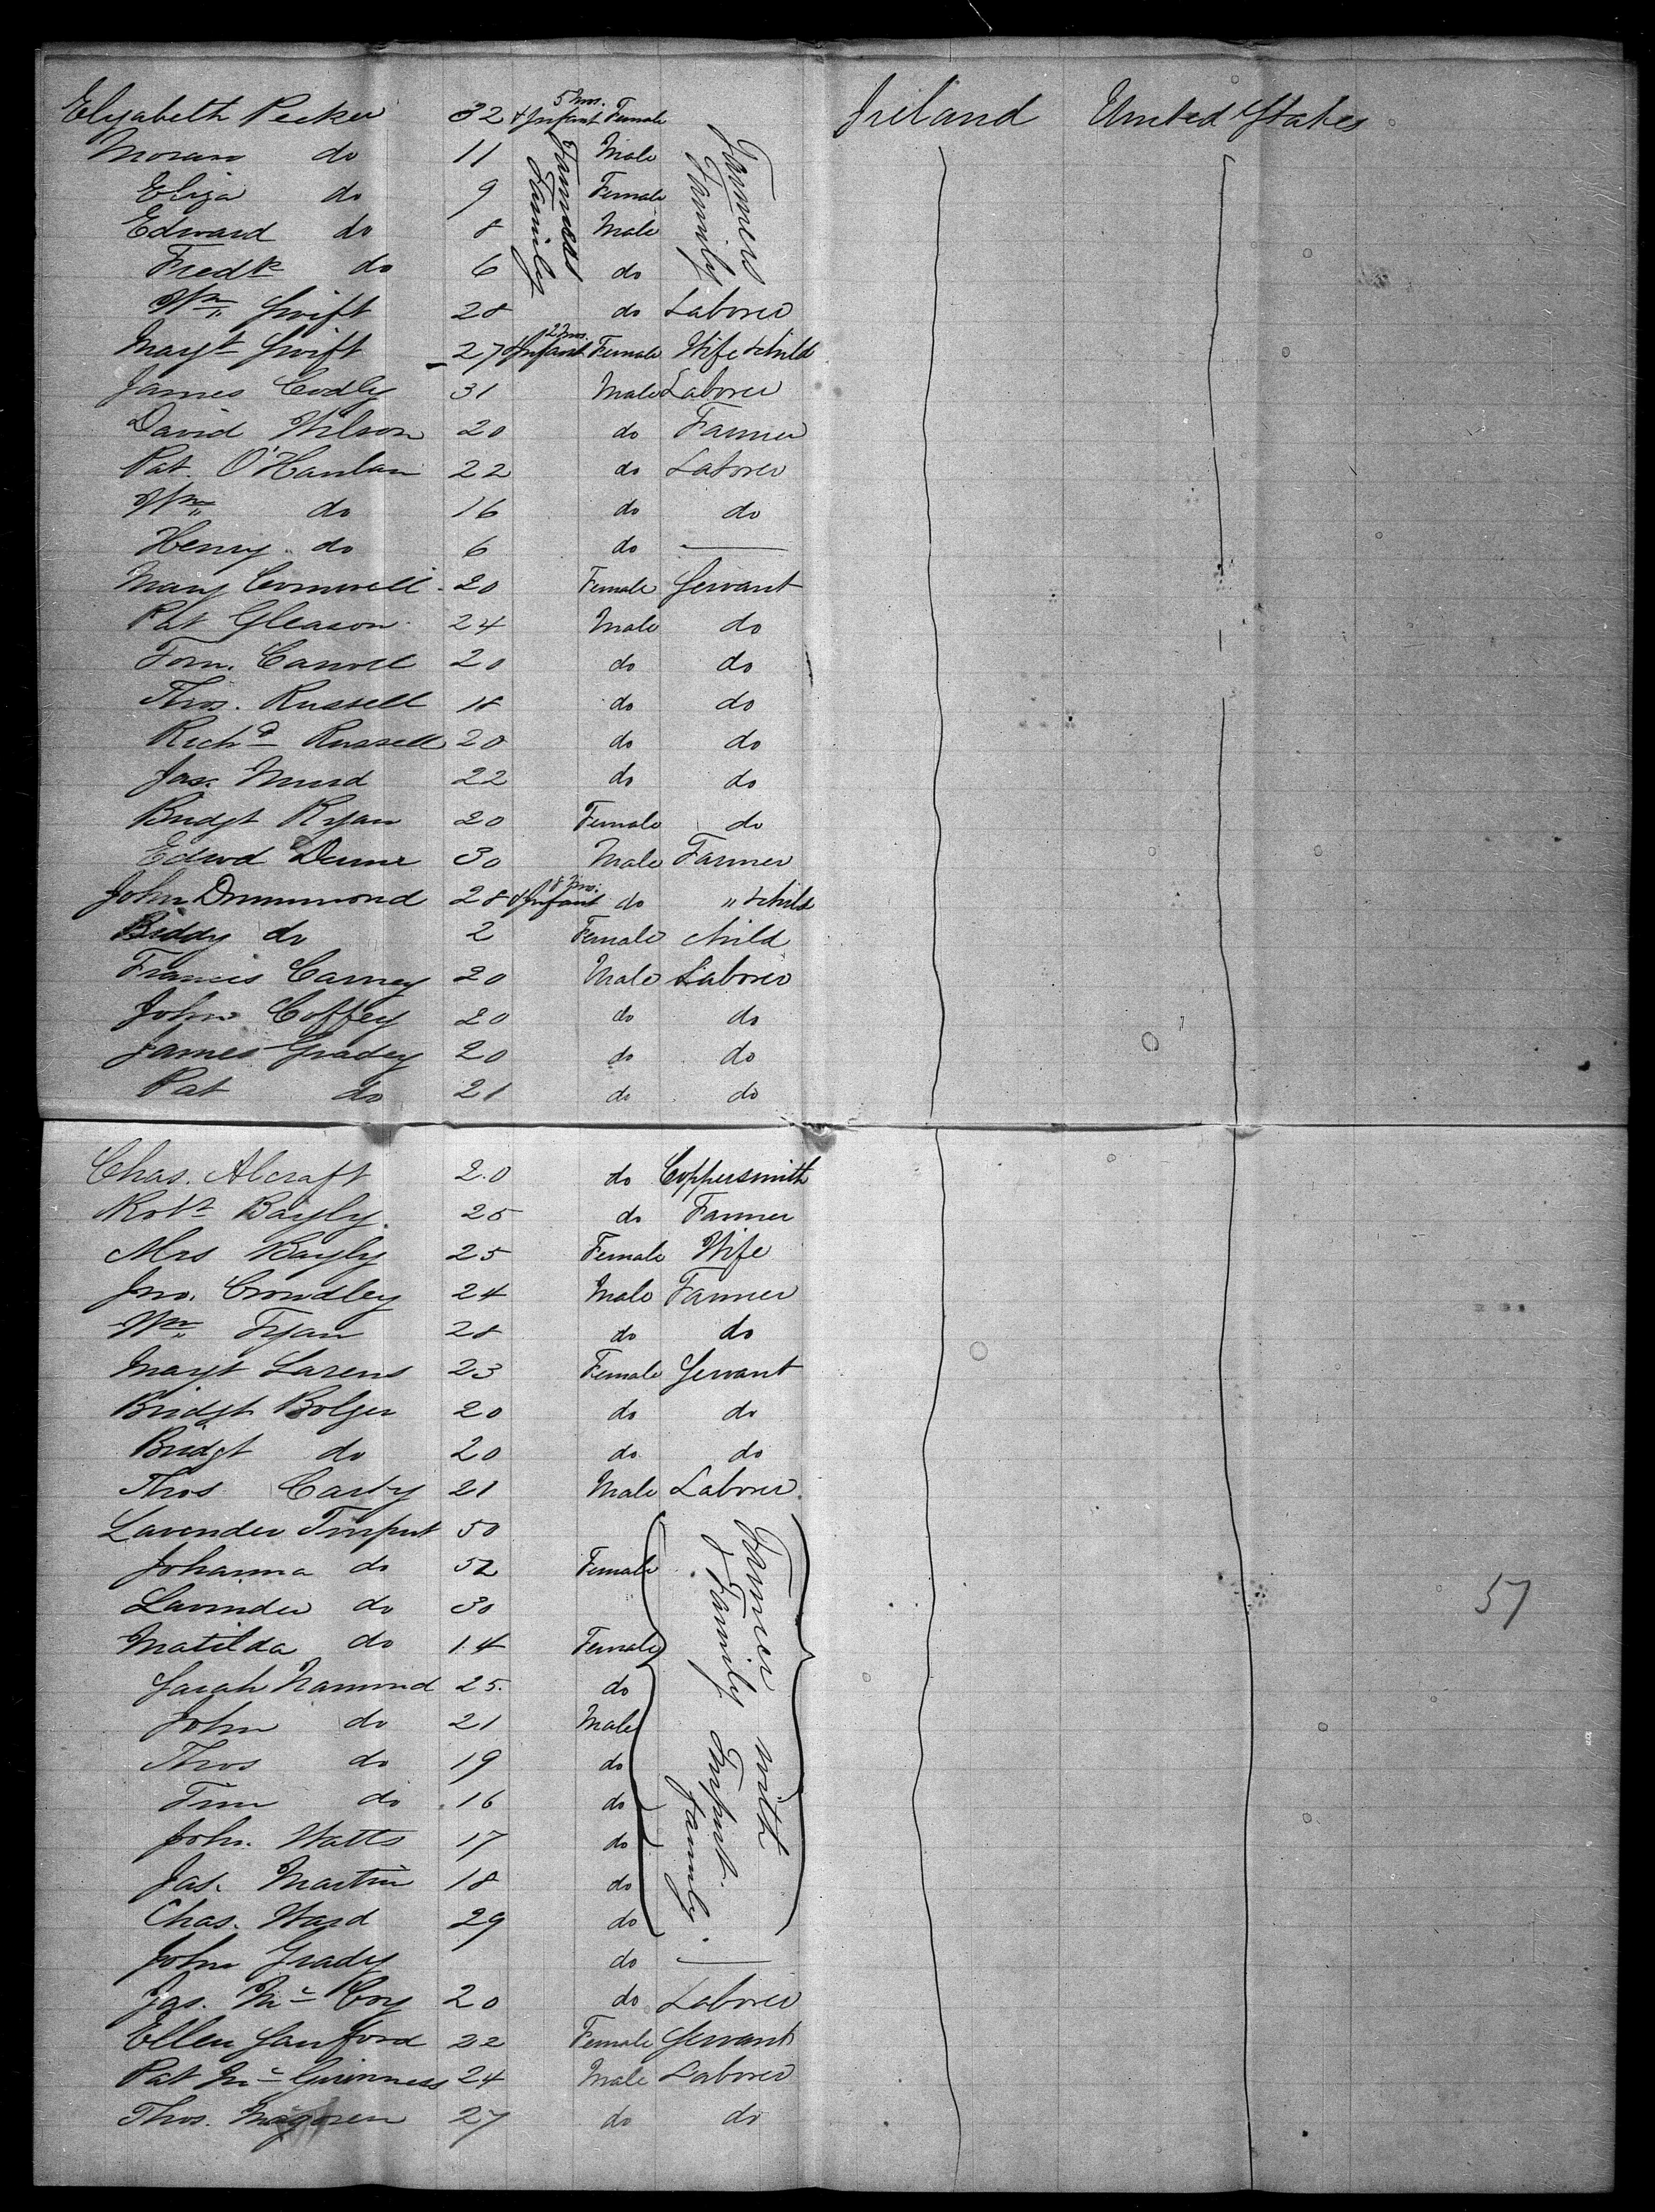 Elizabeth Pecker 32 & Infant 5 mos. Female Ireland United States
Moran do 11 Male
Eliza do 9 Female
Edward do 8 Male
Fredk do 6 do
Farmers Family
Farmers Family
Wm Swift 28 do Laborer
Margt Swift 27 & Infant 2 mos. Female Wife & child
James Codly 31 Male Laborer
David Wilson 20 do Farmer
Pat. O'Hanlan 22 do Laborer
Wm do 16 do do
Henry do 6 do —
Mary Cornwell 20 Female Servant
Pat Gleason 24 Male do
Tom. Carroll 20 do do
Thos. Russell 18 do do
Richd Russell 20 do do
Jas. 22 do do
Bridgt Ryan 20 Female do
Edwd Dunne 30 Male Farmer
John Drummond 28 & Infant 8 mos. do " & child
Biddy do 2 Female child
Francis Carney 20 Male Laborer
John Coffey 20 do do
James Gradey 20 do do
Pat do 21 do do
Chas. Alcraft 20 do Coppersmith
Robt Bayly 25 do Farmer
Mrs Bayly 25 Female Wife
Jno. Crondley 24 Male Farmer
Wm Fryan 28 do do
Margt Larens 23 Female Servant
Bridgt Bolger 20 do do
Bridgt do 20 do do
Thos Carty 21 Male Laborer
Lavender Timput 50
Johanna do 52 Female
Lavinder do 30
Matilda do 14 Female
Sarah Namond 25 do
John do 21 Male
Thos do 19 do
Tim do 16 do
John. Watts 17 do
Jas. Martin 18 do
Chas. Ward 29 do
Farmer with
Family Timput.
Family
57
John Grady do —
Jas. McCoy 20 do Laborer
Ellen Sanford 22 Female Servant
Pat McGuinness 24 Male Laborer
Thos. 27 do do